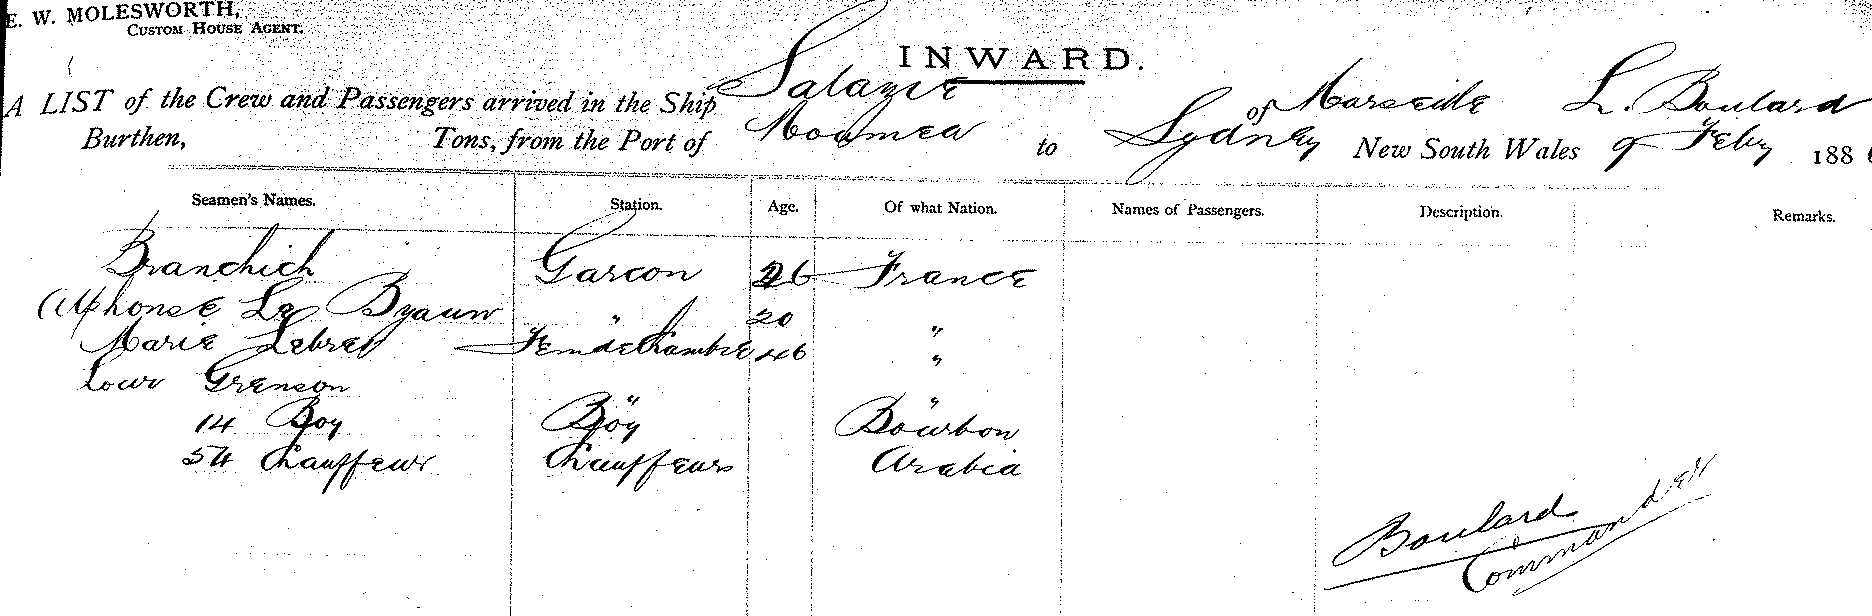 E. W. MOLESWORTH,
CUSTOM HOUSE AGENT.
INWARD.
A LIST of the Crew and Passengers arrived in the Ship Salazie of Marseille L. Boulard
Burthen, Tons, from the Port of Noumea to Sydney New South Wales 9 Feby 188
Seamen's Names. Station. Age. Of what Nation. Names of Passengers. Description. Remarks.
Branchich Garcon 26 France
Alphonse Le 20 "
Marie Lebret Femdechambre 46 "
Louis Grenson " "
14 Boy Boy Bourbon
54 Chauffeur Chauffeurs Arabia
Boulard
Commander